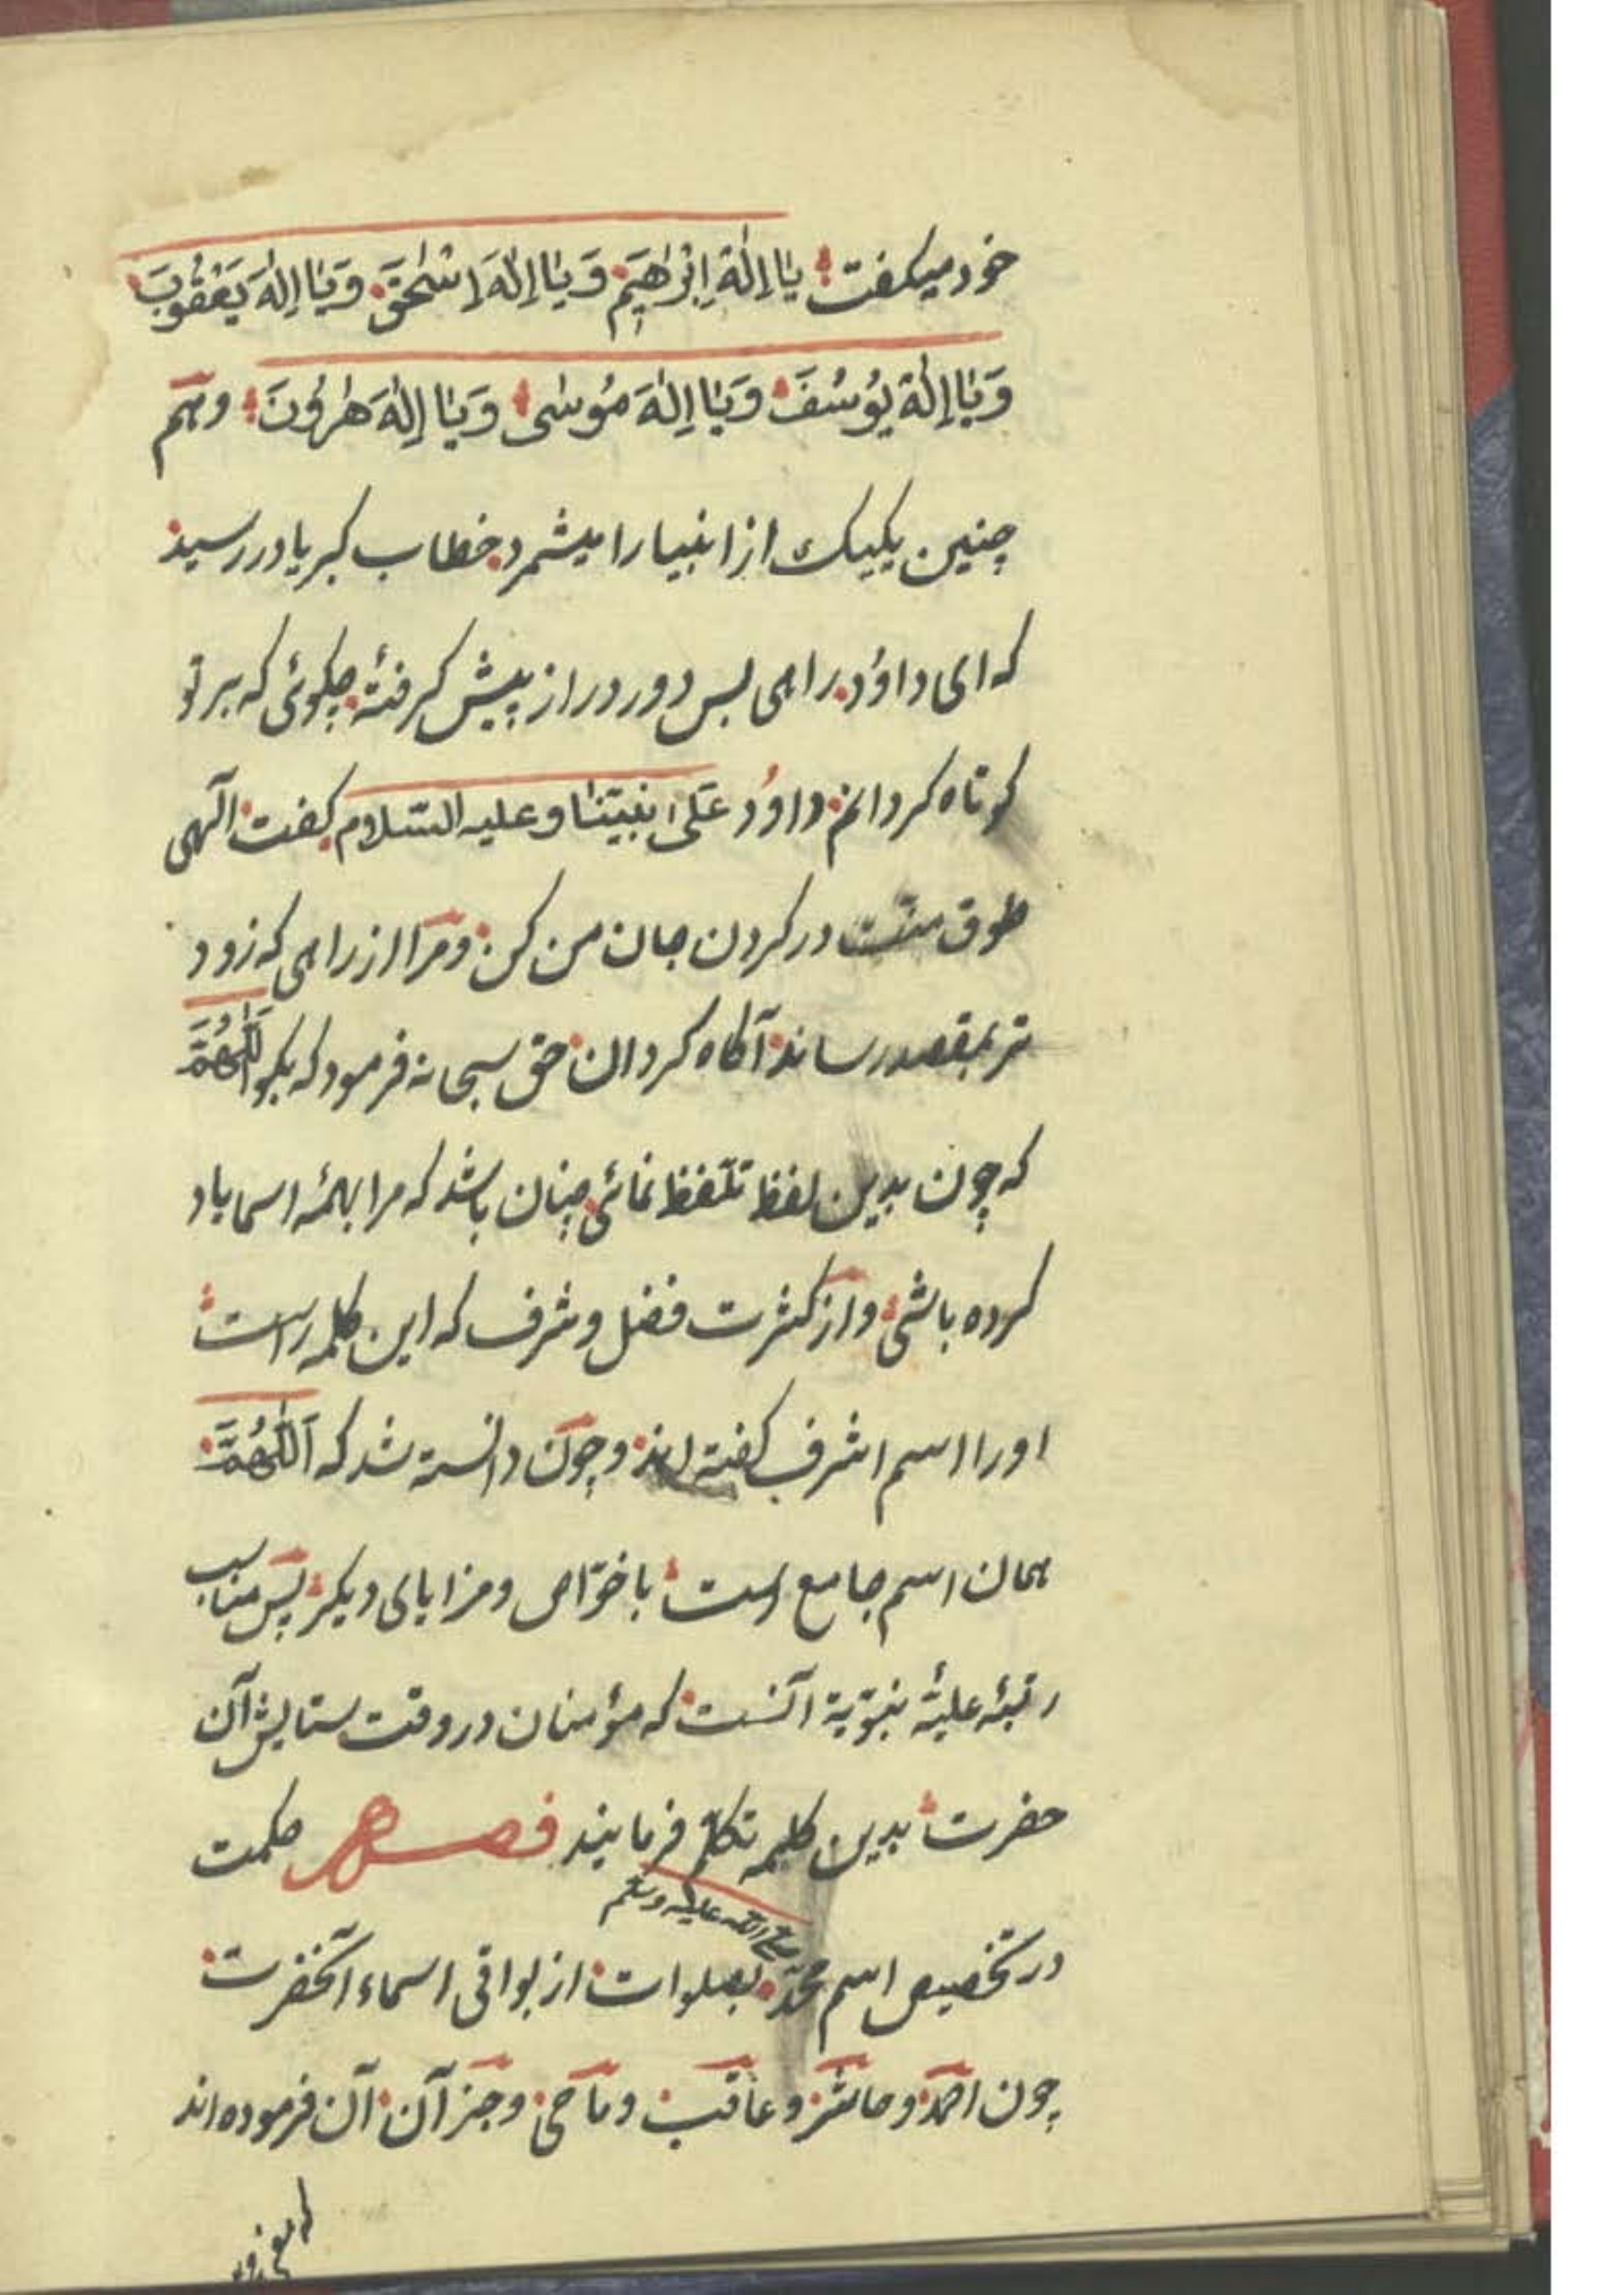 خود میکفت یَا اِلٰهَ اِبْرٰهِیمَ وَیَا اِلٰهَ اِسْحٰقَ وَیَا اِلٰهَ یَعْقُوبَ
وَیَا اِلٰهَ یُوسُفَ وَیَا اِلٰهَ مُوسٰی وَیَا اِلٰهَ هٰرُونَ وهم
چنین یکیک از انبیا را میشمرد خطاب کبریا در رسید
که ای داوُد راهی بس دور دراز پیش کرفتهٔ چکوئی که بر تو
کوتاه کردانم داوُد عَلٰی نبیّنا وعلیه السّلام کفت آلهی
طوق منّت در کردن جان من کن ومرا از راهی که زود
تر بمقصد رساند آکاه کردان حق سبحانه فرمود که بکو اَللّٰهُمَّ
که چون بدین لفظ تلفّظ نمائی چنان باشد که مرا بهمهٔ اسما یاد
کرده باشی واز کثرت فضل وشرف که این کلمه راست
او را اسم اشرف کفته اند وچون دانسته شد که اَللّٰهُمَّ
همان اسم جامع است با خوّاص ومزایای دیکر پس مناسب
رتبهٔ علیّهٔ نبوّیة آنست که مؤمنان در وقت ستایش آن
حضرت بدین کلمه تکلّم فرمایند فصـــل حکمت
در تخصیص اسم محمّد صلی الله علیه وسلم بصلوات از بواقی اسماء آنحضرت
چون احمد وحاشر وعاقب وماحی وجز آن آن فرموده اند